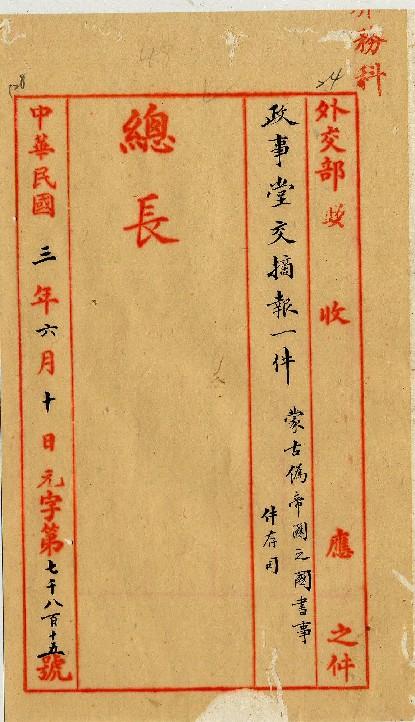 務科
24
外交部 收 應 之件
政事堂交摘報一件
蒙古偽帝國之國書事
件存司
總長
中華民國三年六月十日元字第七千八百十五號